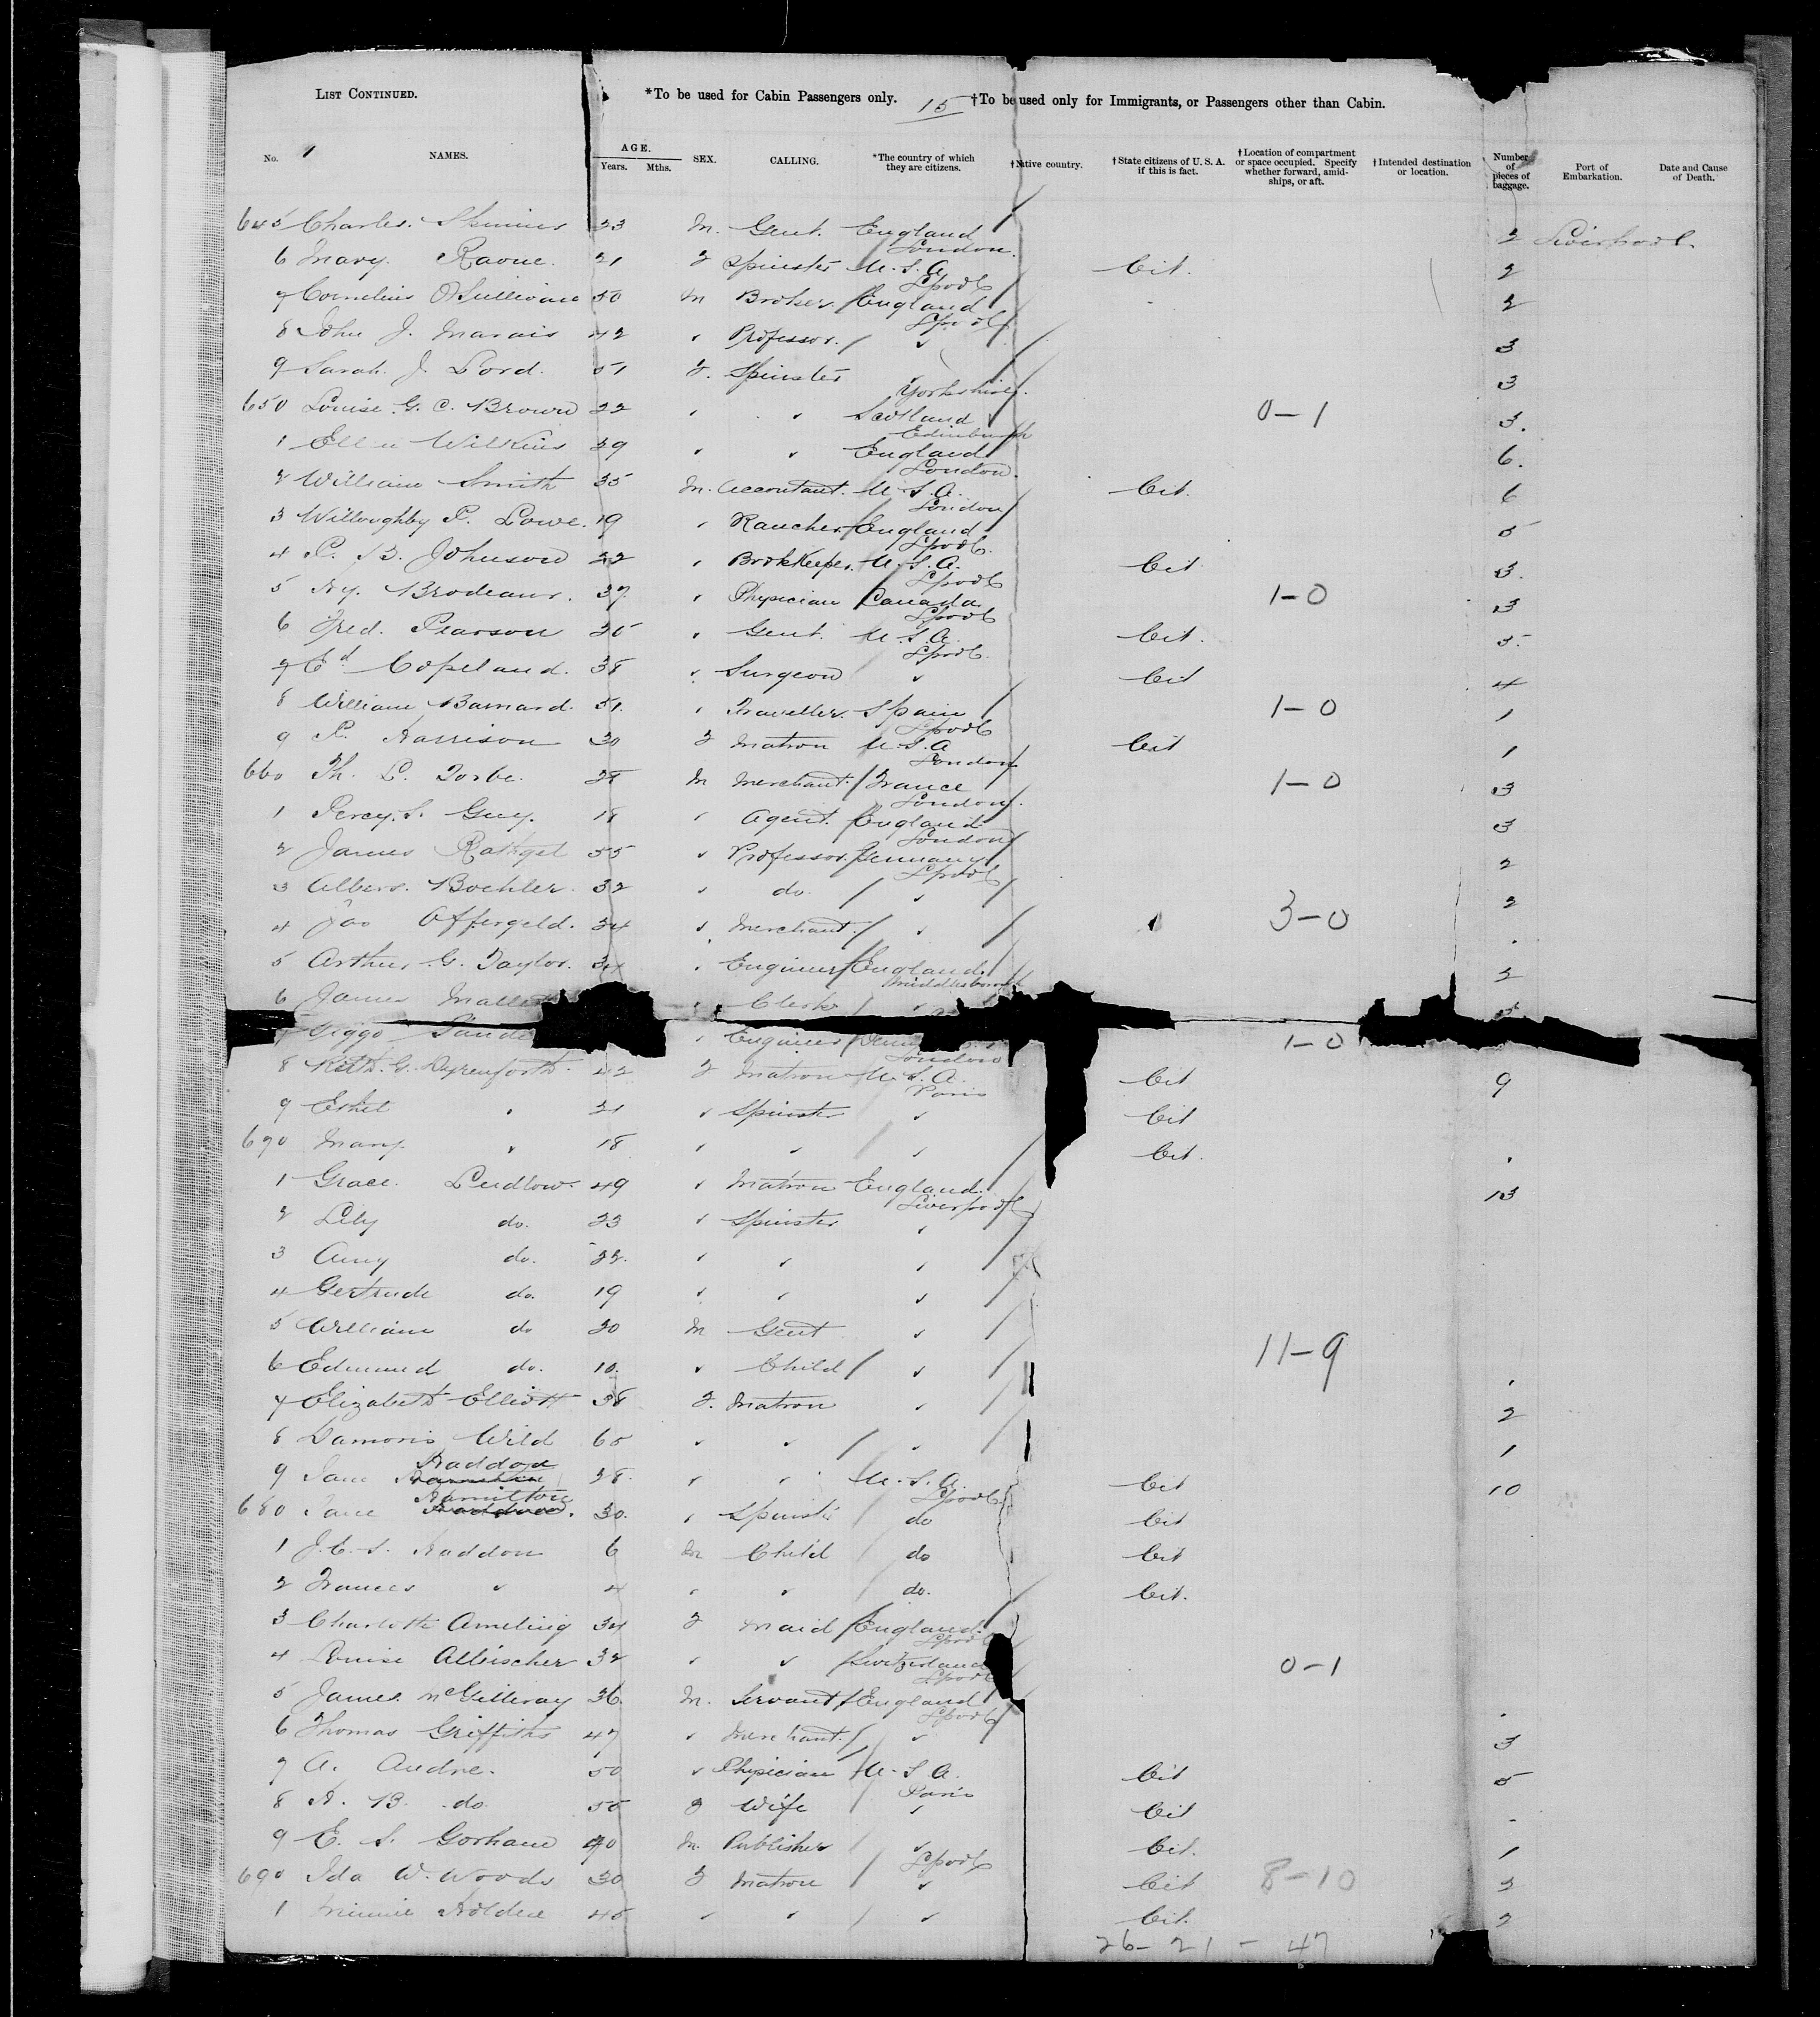 LIST CONTINUED. *To be used for Cabin Passengers only. 15 †To be used only for Immigrants, or Passengers other than Cabin.
No. NAMES. AGE. Years. Mths. SEX. CALLING. *The country of which they are citizens. †Native country. †State citizens of U. S. A. if this is fact. †Location of compartment or space occupied. Specify whether forward, amidships, or aft. †Intended destination or location. Number of pieces of baggage. Port of Embarkation. Date and Cause of Death.
645 Charles 23 M. Gent. England London 2 Liverpool
6 Mary 21 F Spinster U.S.A. Lpool Cit. 2
7 Cornelius O'Sullivan 50 M Broker England Lpool 2
8 John J. Marais 42 " Professor " 3
9 Sarah J. Lord. 51 F. Spinster Yorkshire 3
650 Louise G. C. Brown 22 " " Scotland Edinburgh 0-1 3.
1 Ellen Wilkins 39 " " England London 6.
2 William Smith 35 M. Accontant. U.S.A. London Cit. 6
3 Willoughby P. Lowe. 19 " Rancher England Lpool 5
4 P. B. Johnson 22 " Bookkeeper. U.S.A. Lpool Cit 3.
5 Hy. Brodeaur. 37 " Physician Canada Lpool 1-0 3
6 Fred. Pearson 36 " Gent. U.S.A. Lpool Cit. 5.
7 Ed Copeland. 38 " Surgeon " Cit 4
8 William Barnard. 51. " Traveller Spain Lpool 1-0 1
9 P. Harrison 30 F Matron U.S.A London Cit 1
660 Th. L. 28 M Merchant. France London. 1-0 3
1 Percy. S. Guy. 18 " Agent. England London 3
2 James 55 " Professor. Germany Lpool 2
3 Albers. Boehler. 32 " do. " 2
4 Offergeld. 34 " Merchant " 3-0
5 Arthur G. Taylor. 34 " Engineer England Middlesborough 2
6 James " Clerk "
Viggo " Engineer London 1-0
8 G. Dyrenforth. 42 F Matron U.S.A. Paris Cit 9
9 Ethel " 21 " Spinster " Cit
670 Mary " 18 " " " Cit.
1 Grace Ludlow 49 " Matron England Liverpool 13
2 Lily do. 23 " Spinster "
3 Amy do. 22. " " "
4 Gertrude do. 19 " " "
5 William do 20 M Gent "
6 Edmund do. 10. " Child " 11-9
7 Elizabeth Elliott 38 F. Matron " 2
8 Damoris Wild 65 " " " 1
9 Jane Haddon 38. " " U.S.A. Lpool Cit 10
680 Jane Hamilton 30. " Spinster do Cit
1 J.C.S. Haddon 6 M Child do Cit
2 Frances " 4 " " do. Cit.
3 Charlotte Ameling 34 F Maid England Lpool
4 Louise Albischer 32 " " Switzerland Lpool 0-1
5 James McGilleray 36 M. Servant England Lpool
6 Thomas Griffiths 47 " Merchant. " 3
7 A. Andre. 50 " Physician U.S.A. Paris Cit 5
8 H. B. do. 50 F Wife " Cit
9 E. S. Gorham 40 M. Publisher " Lpool Cit. 1
690 Ida W. Woods 30 F Matron " Cit 8-10 2
1 Minnie Holden 45 " " " Cit. 2
26-21-47